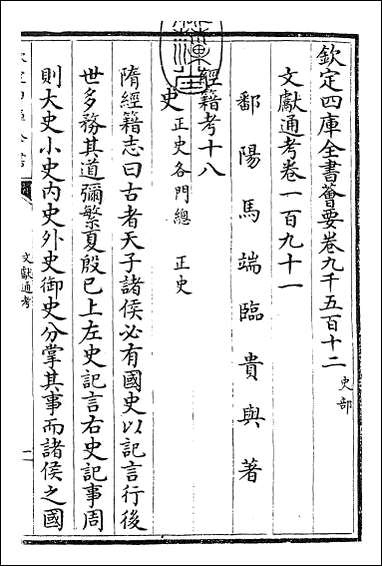 欽定四庫全書薈要卷九千五百十二 史部
文獻通考卷一百九十一
鄱陽馬端臨貴與著
經籍考十八
史 正史各門總 正史
隋經籍志曰古者天子諸侯必有國史以記言行後
世多務其道彌繁夏殷已上左史記言右史記事周
則大史小史内史外史御史分掌其事而諸侯之國
文獻通考
一